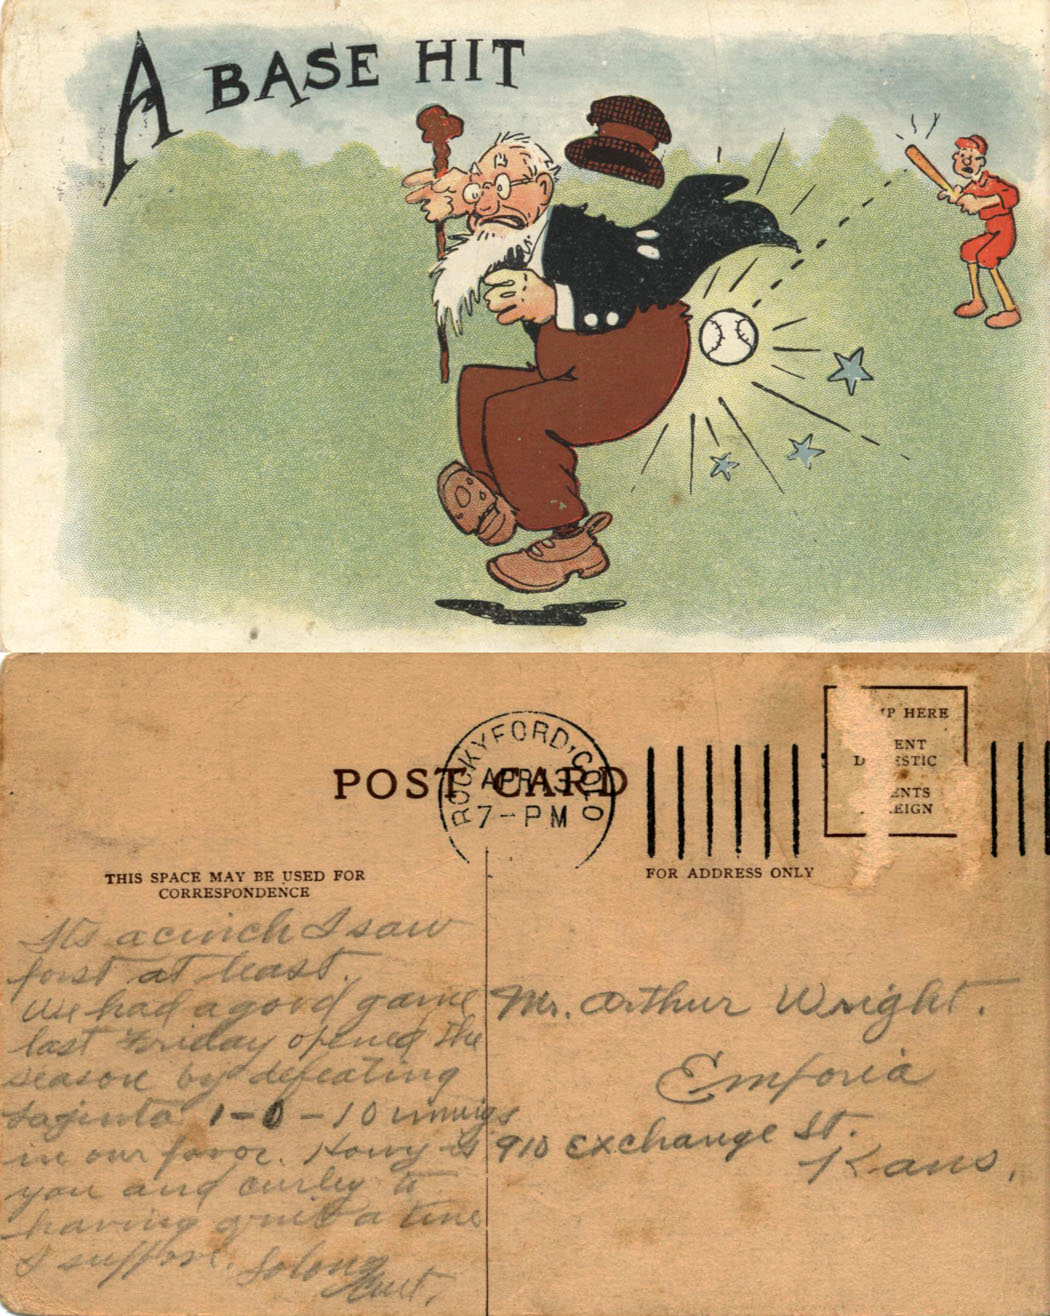 A BASE HIT
POST CARD
ROCKYFORD, COLO
APR 13
7-PM
P HERE
ENT
D ESTIC
ENTS
EIGN
THIS SPACE MAY BE USED FOR
CORRESPONDENCE
FOR ADDRESS ONLY
Its a cinch I saw
at least.
We had a good game
last Friday opened the
season by defeating
1-0-10 innings
in our favor. is
you and curley
having quite a time
I suppose. So long
Mr. Arthur Wright.
Emporia
910 Exchange St.
Kans.